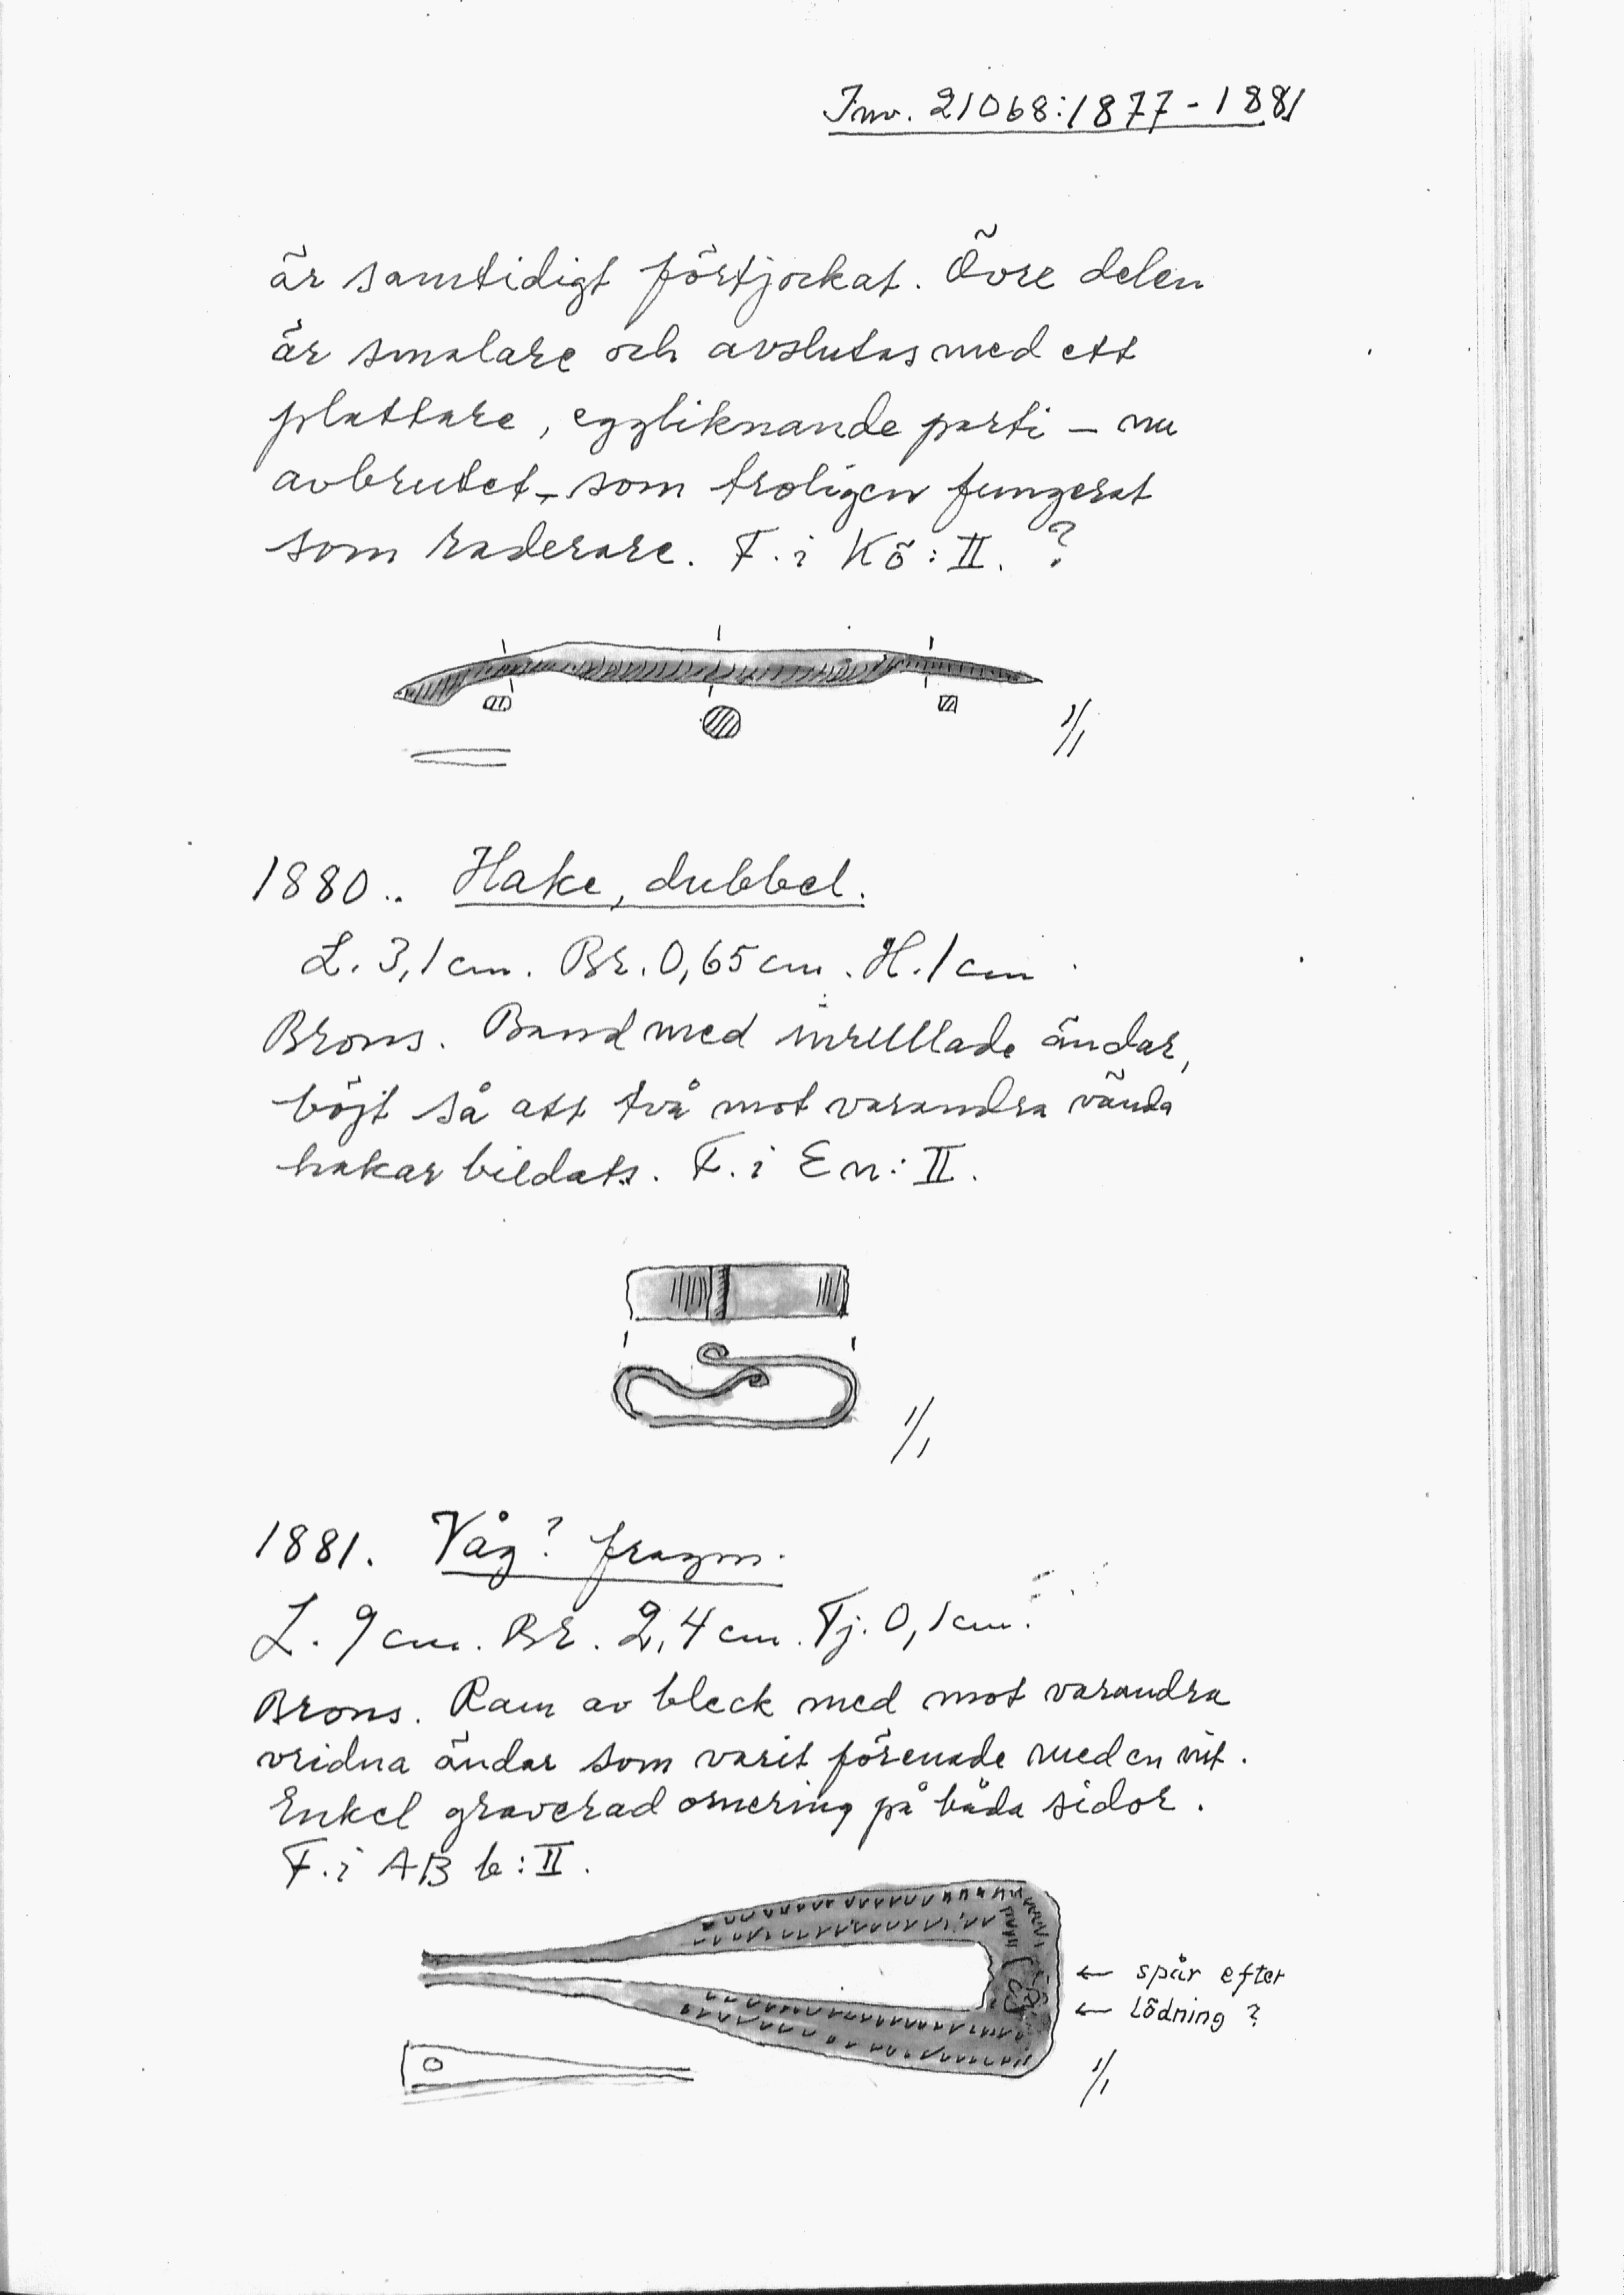 Inv. 21068:1877-1881
är samtidigt förtjockat. Övre delen
är smalare och avslutas med ett
plattare, eggliknande parti – nu
avbrutet – som troligen fungerat
som raderare. F. i Kö: II. ?
1/1
1880. Hake, dubbel.
L. 3,1 cm. Br. 0,65 cm. H. 1 cm
Brons. Band med inrullade ändar,
böjt så att två mot varandra vända
hakar bildats. F. i En: II.
1/1
1881. Våg? fragm.
L. 9 cm. Br. 2,4 cm. Tj. 0,1 cm.
Brons. Ram av bleck med mot varandra
vridna ändar som varit förenade med en nit.
Enkel graverad ornering på båda sidor.
F. i AB b: II.
← spår efter
← lödning ?
1/1